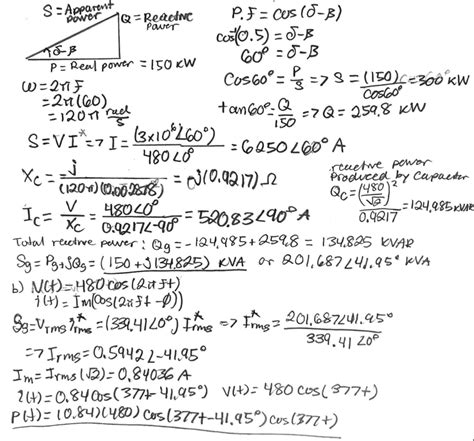 S = Apparent power
Q = Reactive Power
δ-β
P = Real power = 150 kW
P.F = cos(δ-β)
cos⁻(0.5) = δ-β
60° = δ-β
cos60° = P/S => S = (150)/cos60° = 300 kW
tan60° = Q/150 => Q = 259,8 kW
ω = 2πf
= 2π(60)
= 120π rad/s
S = VI* => I = (3x10⁶∠60°)/480∠0° = 6250∠60° A
Xc = j/(120π)(0.002878) = -j(0.9217)Ω
Ic = V/Xc = 480∠0°/0.9217∠-90° = 520.83∠90° A
reactive power
Produced by Capacitor
Qc = (480/√2)²/0.9217 = 124,985 kVAR
Total reactive power: Qg = -124,985 + 259.8 = 134.825 KVAR
Sg = Pg + jQg = (150 + j134.825) KVA or 201.687∠41.95° KVA
b) V(t) = 480 cos(2πft)
i(t) = Im(cos(2πft - θ))
Sg = Vrms I*rms = (339.41∠0°) I*rms => I*rms = 201.687∠41.95°/339.41∠0°
=> Irms = 0.5942∠-41.95°
Im = Irms(√2) = 0.84036 A
i(t) = 0.84cos(377t - 41.95°) V(t) = 480 cos(377t)
P(t) = (0.84)(480) cos(377t - 41.95°) cos(377t)